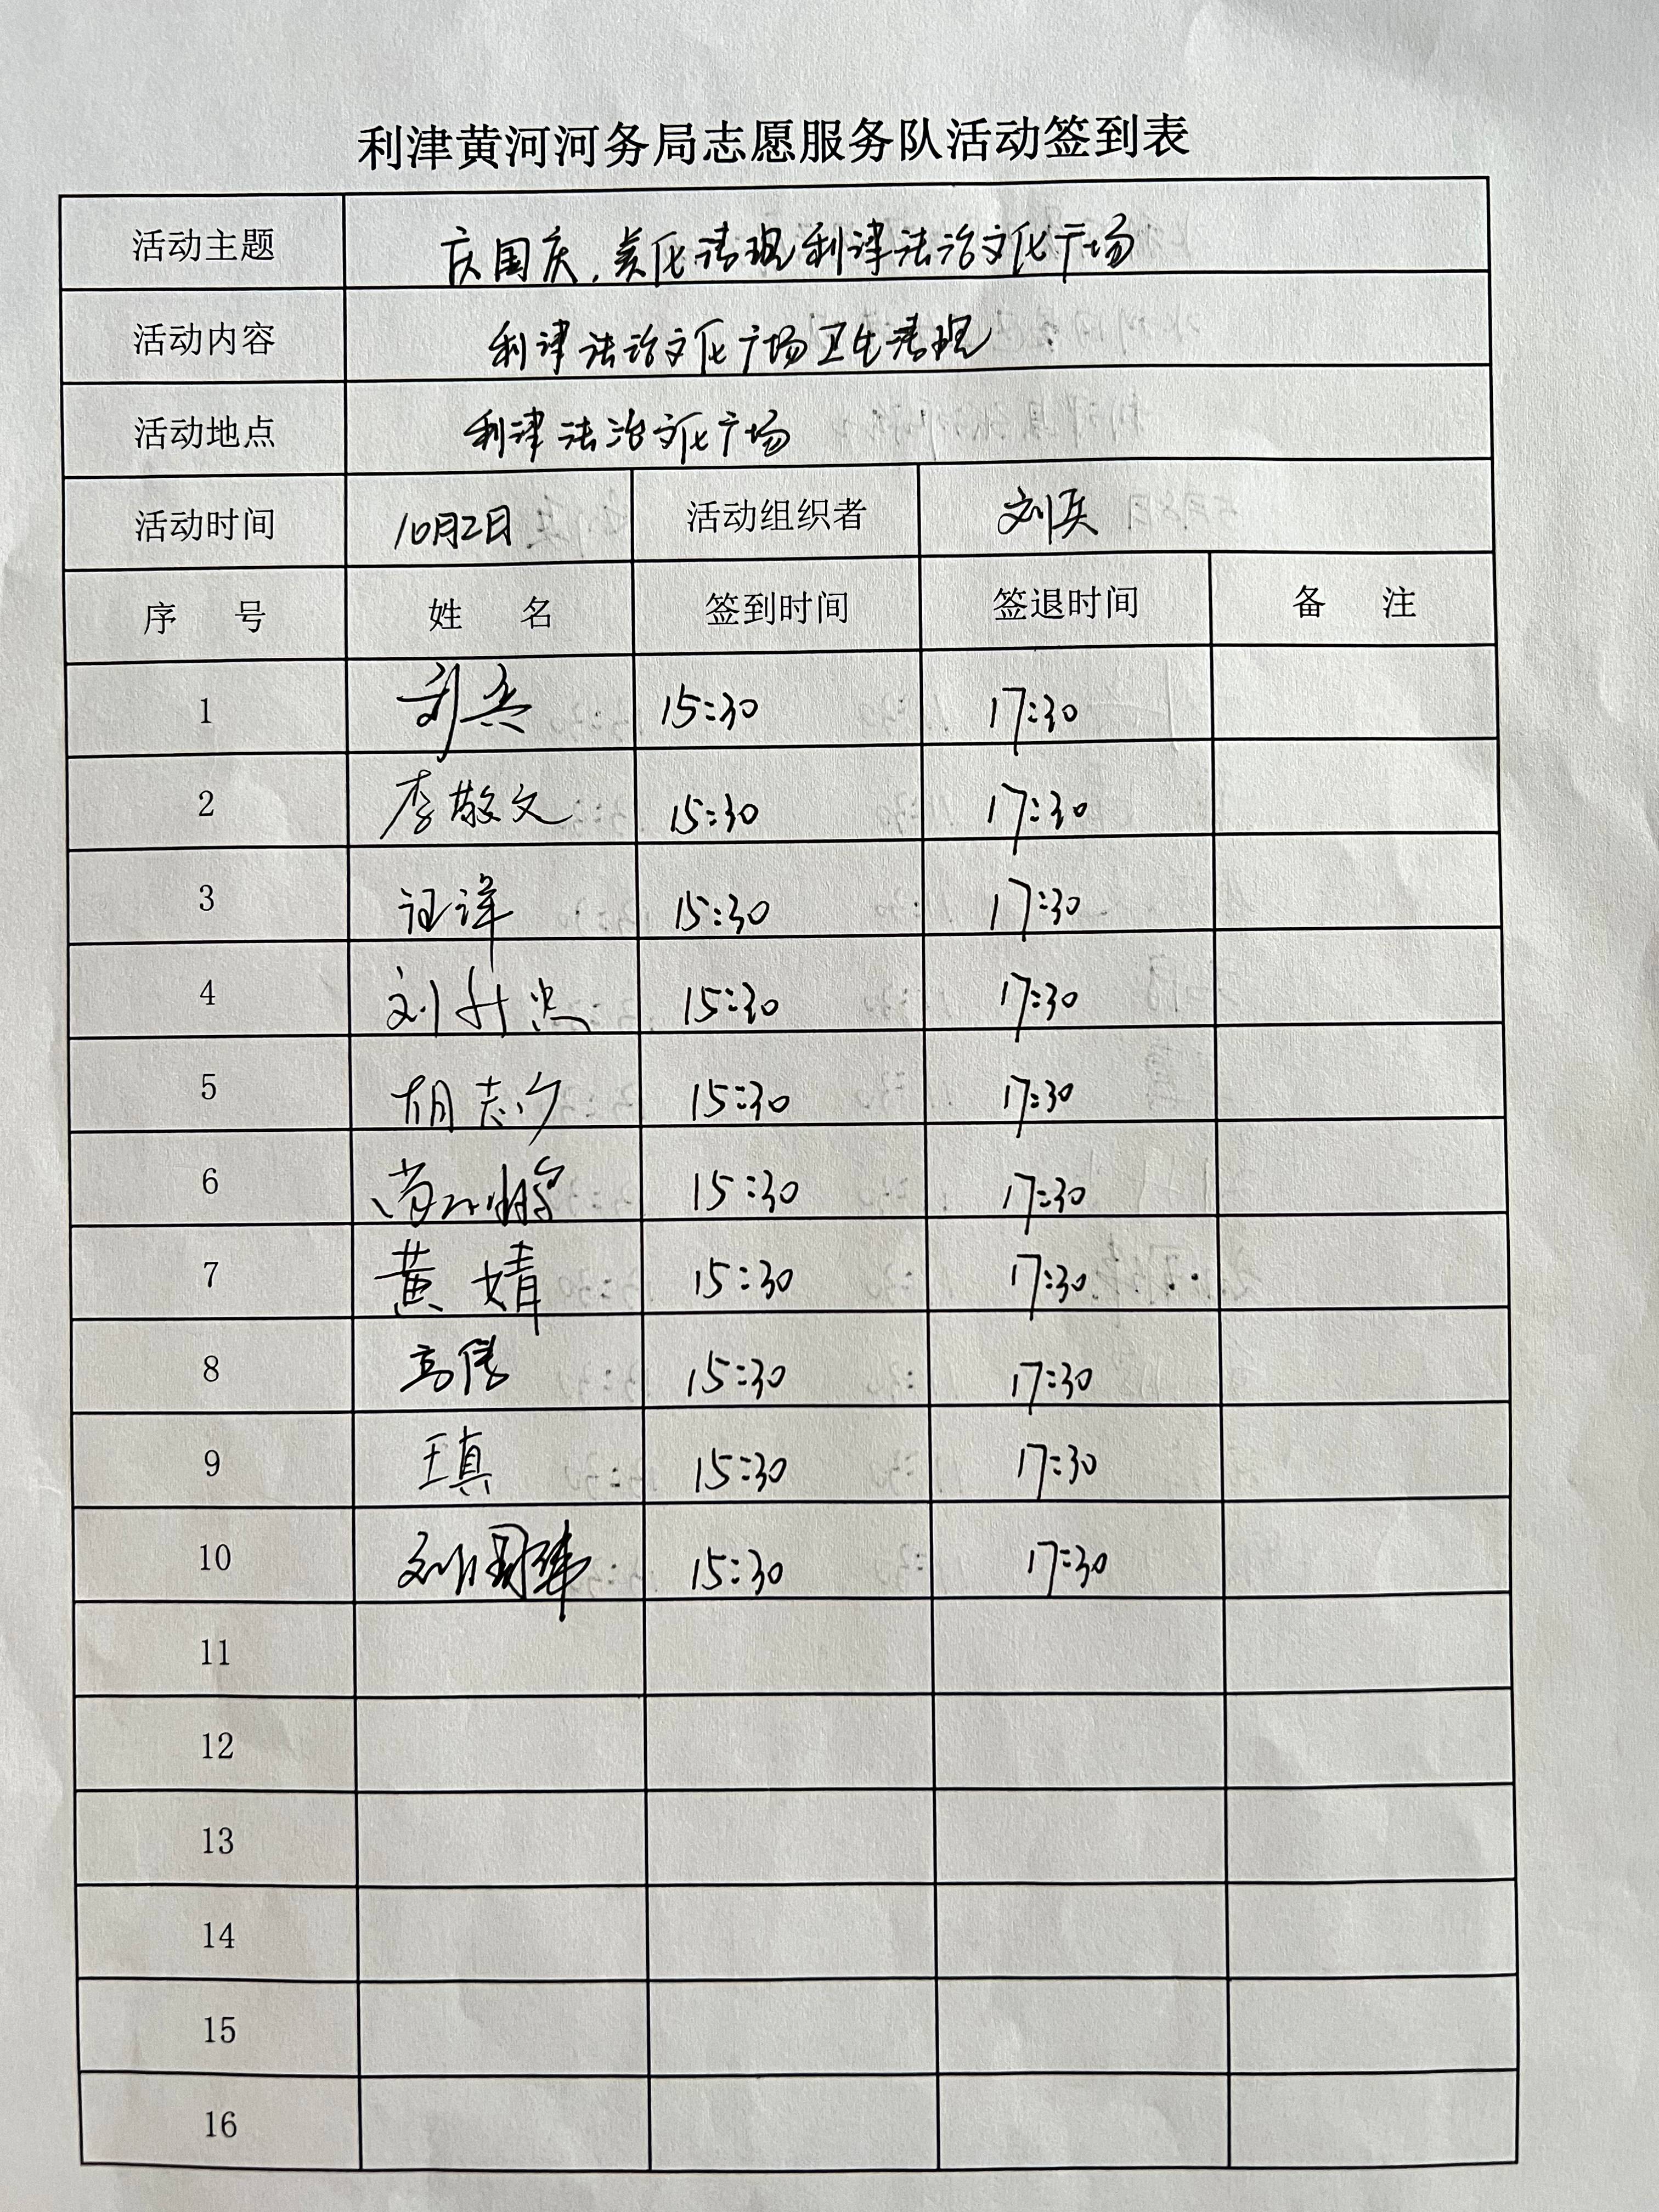 利津黄河河务局志愿服务队活动签到表
活动主题 庆国庆，美化清理利津法治文化广场
活动内容 利津法治文化广场卫生清理
活动地点 利津法治文化广场
活动时间 10月2日 活动组织者 刘兵
序 号 姓 名 签到时间 签退时间 备 注
1 刘兵 15:30 17:30
2 李敬文 15:30 17:30
3 15:30 17:30
4 刘升忠 15:30 17:30
5 胡志 15:30 17:30
6 15:30 17:30
7 黄婧 15:30 17:30
8 高伟 15:30 17:30
9 王真 15:30 17:30
10 刘国伟 15:30 17:30
11
12
13
14
15
16